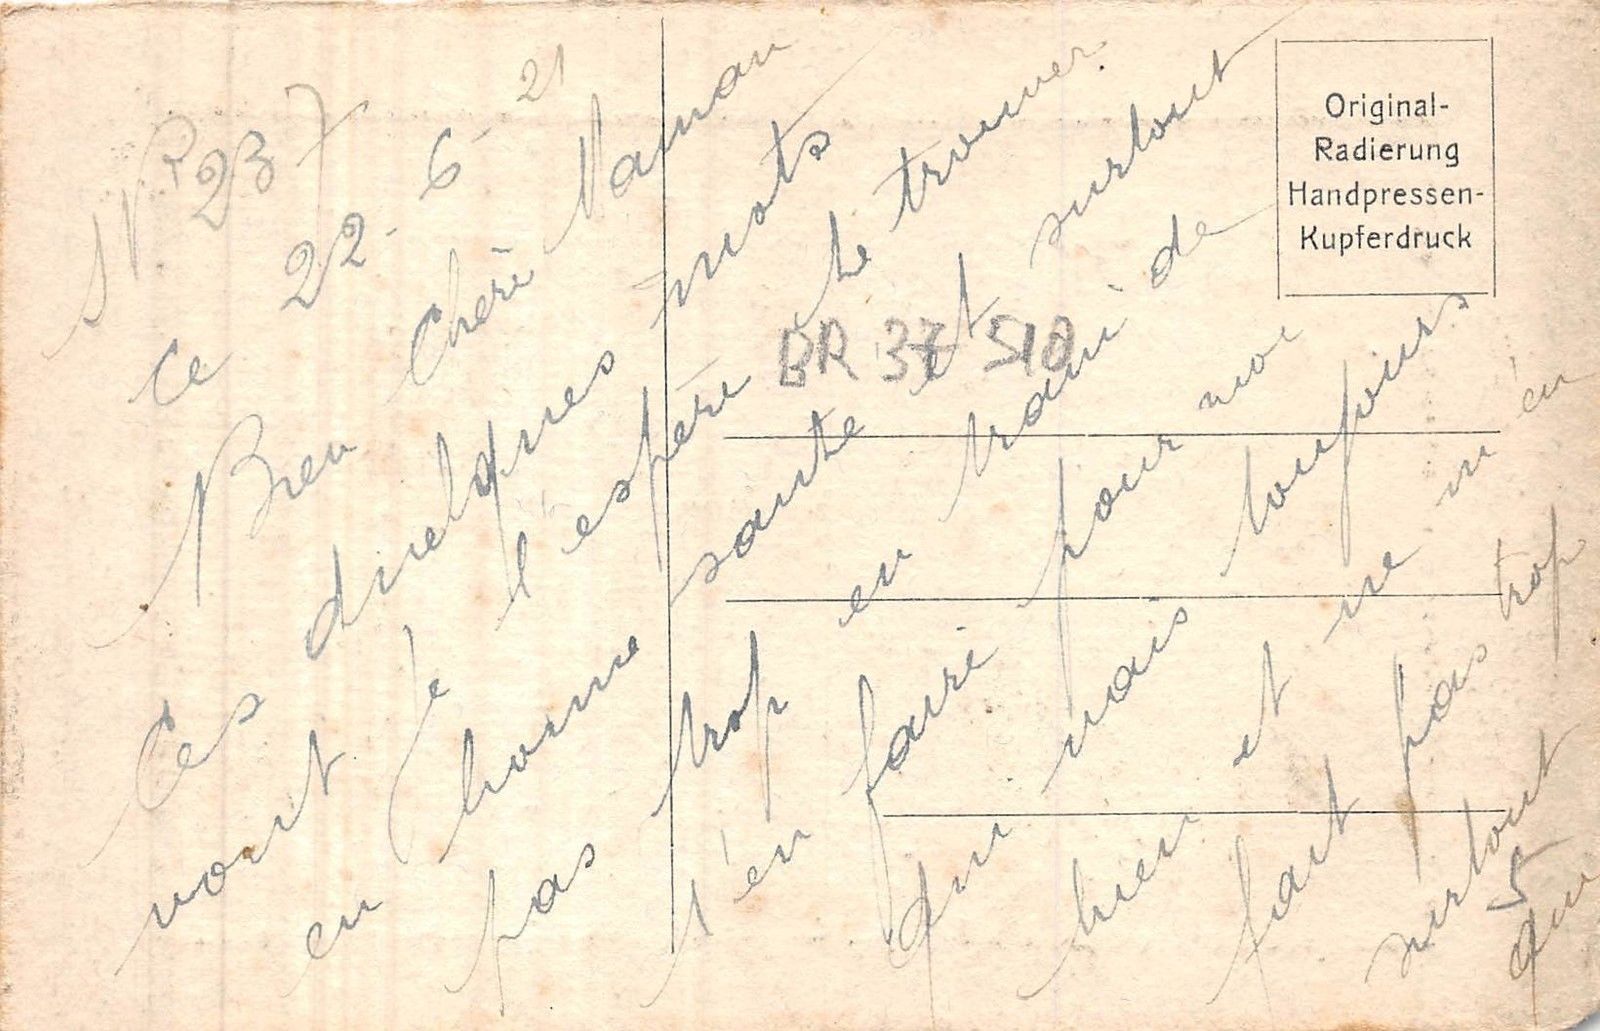 237
ce 22-6-21
Bien Chèri Maman
Ces quelques mots
vont Je l'espère te trouver
en bonne sante et surtout
pas trop en train de
t'en faire pour moi
qui vais toujours
bien et ne m'en
fait pas trop
surtout
que
BR 37 510
5
Original-
Radierung
Handpressen-
Kupferdruck